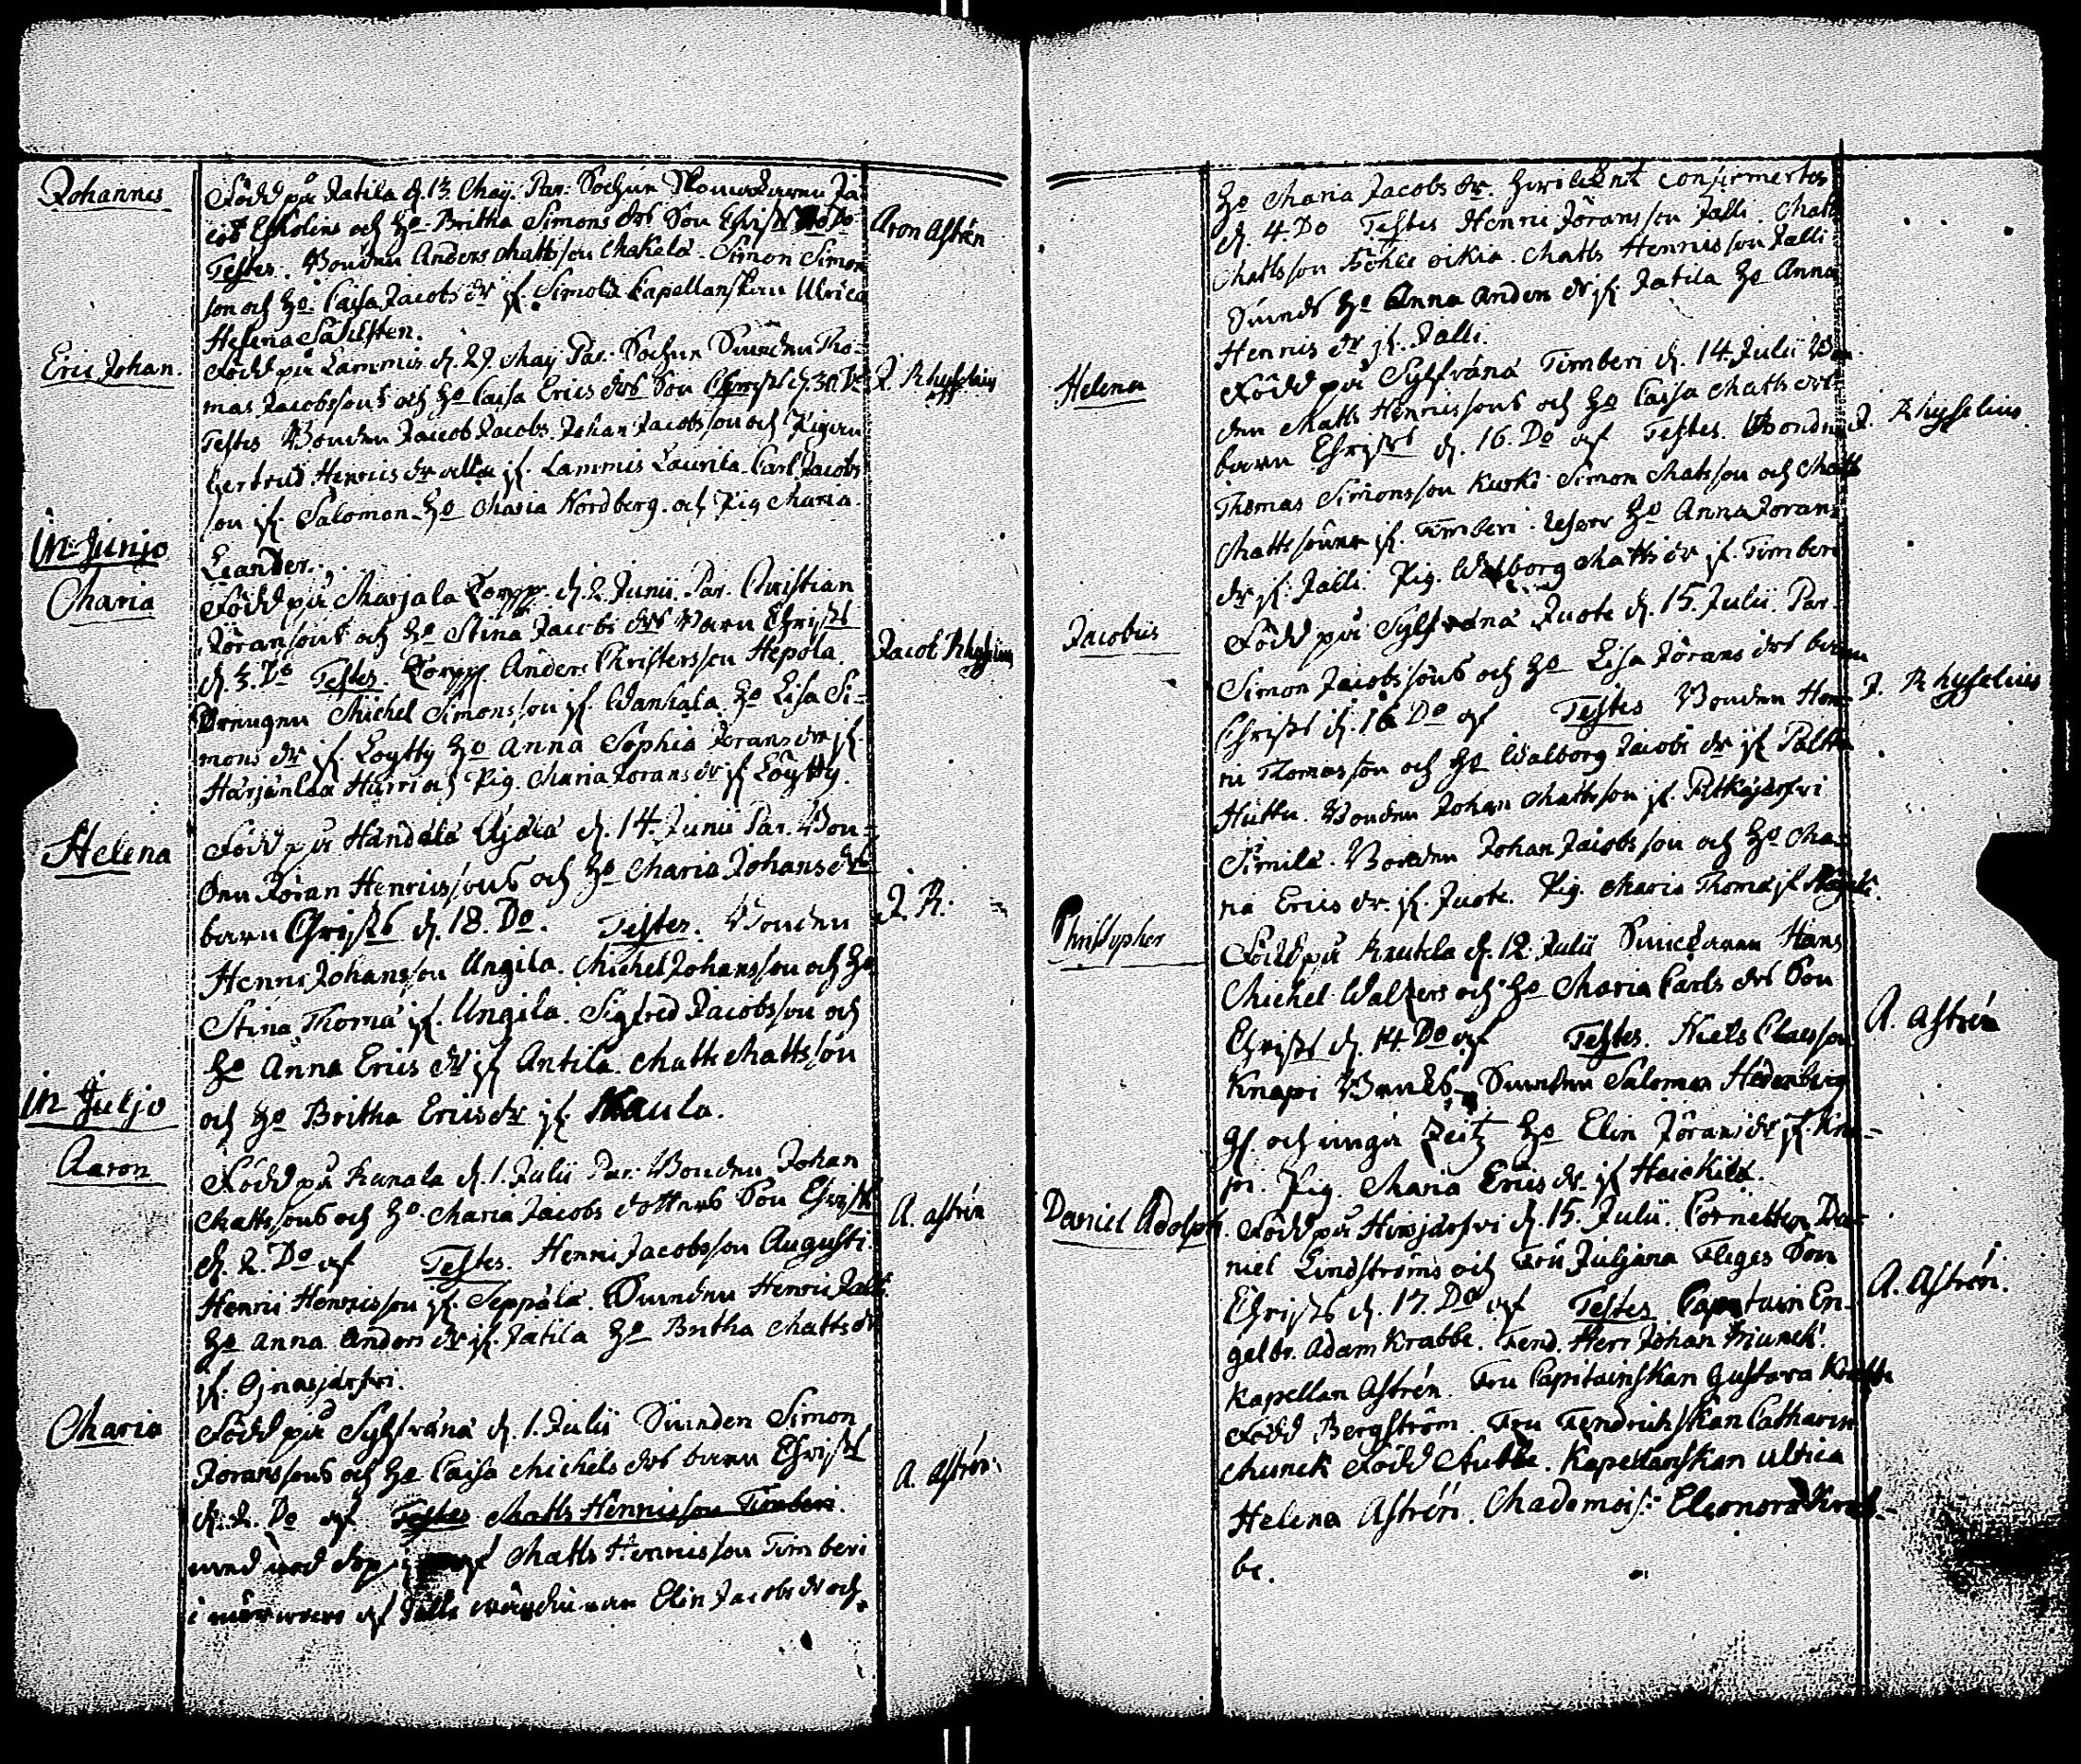 Johannis
Född på Jatila d. 13. Maij. Par. Sochne Skomakaren Ja-
cob Eckolins och H:o Britha Simons drs Son Christ. Do
Testes. Bonden Anders Mattsson Makela. Simon Simon
son och H:o Caisa Jacobs dr if. Simola Kapellanskan Ulrica
Helena Sahlsten.
Aron Astrén
Eric Johan.
Född på Lammis d. 29. Maij Par. Sochne Smeden Tho-
mas Jacobssons och H:o Caisa Erics drs Son Christ d. 30. Do
Testes Bonden Jacob Jacobs. Johan Jacobsson och Pigan
Gertrud Henrics dr alla if. Lammis Laurila. Carl Jacobs
son if. Salomon. H:o Maria Nordberg. och Pig Maria.
Leander.
J. Rhyselius
in Junjo
Maria
Född på Marjala Torpp. d. 2. Junii. Par. Christian
Jöransons och H:o Stina Jacobs drs Barn Christ
d. 3. Do Testes. Torpp. Anders Christersson Hepola.
Drengen Michel Simonsson if. Wanhala H:o Lisa Si-
mons dr if. Loytty H:o Anna Sophia Jorans dr if.
Harjanlaa Harri och Pig. Maria Jorans dr if Löytty.
Jacob Rhyselius
Helena
Född på Handala Ujala d. 14. Junii Par. Bon-
den Jöran Henricssons och H:o Maria Johans drs
barn Christs d. 18. Do. Testes. Bonden
Henric Johansson Ungila. Michel Johansson och H:o
Stina Thoma if. Ungila. Sigfred Jacobsson och
H:o Anna Erics dr if Antila. Matts Mattsson
och H:o Britha Erics dr if. Kaula.
J. R.
in Juljo
Aaron
Född på Kanala d. 1. Julii Par. Bonden Johan
Mattssons och H:o Maria Jacobs dotters Son Christ
d. 2. Do af Testes. Henric Jacobsson Augusti.
Henric Henricsson if. Seppälä. Smeden Henric Jalli.
H:o Anna Anders dr if. Jatila H:o Britha Matts dr
if. Ojnasjärfvi.
A. Astrén
Maria
Född på Sylfvänä d. 1. Julii Smeden Simon
Joranssons och H:o Caisa Michels drs barn Christ
d. 2. Do af Testes Matts Henricsson Timberi.
af Matts Henricsson Timberi
i närwaro af Elin Jacobs dr och
A. Astrén.
H:o Maria Jacobs dr. hwilcket confirmertes
d. 4. Do Testes Henric Jöransson Jalli. Matts
Mattsson Kohle oikia. Matts Henricsson Jalli
Smeds H:o Anna Anders dr if. Jatila H:o Anna
Henrics dr if. Jalli.
Helena
Född på Sylfvänä Timberi d. 14. Julii Bon-
den Matts Henricssons och H:o Caisa Matts drs
barn Christs d. 16. Do af Testes. Bonden
Thomas Simonsson Kurki. Simon Matsson och Matts
Mattssöner if. Timberi. H:o Anna Jorans
dr if. Jalli. Pig. Walborg Matts dr if. Timberi
J. Rhyselius.
Jacobus
Född på Sylfvänä Juote d. 15. Julii. Par.
Simon Jacobssons och H:o Lisa Jörans drs barn
Christ d. 16. Do af Testes Bonden Hen-
ric Thomasson och H:o Walborg Jacobs dr if
Huttu. Bonden Johan Mattsson if. Pitkäjärfvi
Simila. Bonden Johan Jacobsson och H:o Ma-
ria Erics dr. if. Juote. Pig. Maria Thoma if
J. Rhyselius
Christopher
Född på Kautela d. 12. Julii Smeckaren Hans
Michel Walters och H:o Maria Carls drs Son
Christ d. 14. Do af Testes. Niels Claesson
Knapi Smeden Salomon Hedenberg
H:o Elin Jörans dr if. Kna-
pi. Pig. Maria Erics dr. if Heickilä.
A. Astrén
Daniel Adolph.
Född på Hirsjärfvi d. 15. Julii. Cornetten Da-
niel Lindströms och Fru Juljana Fleges Son
Christs d. 17. Do af Testes Capitain En-
gelbr. Adam Krabbe. Fend. Herr Johan Munck.
Kapellan Astrén. Fru Capitainskan Gustava Krabbe
Född Bergström. Fru Fendrichskan Catharin
Munck Född Stubbe. Kapellanskan Ulrica
Helena Astrén. Mademois: Eleonora Krab-
be.
A. Astrén.